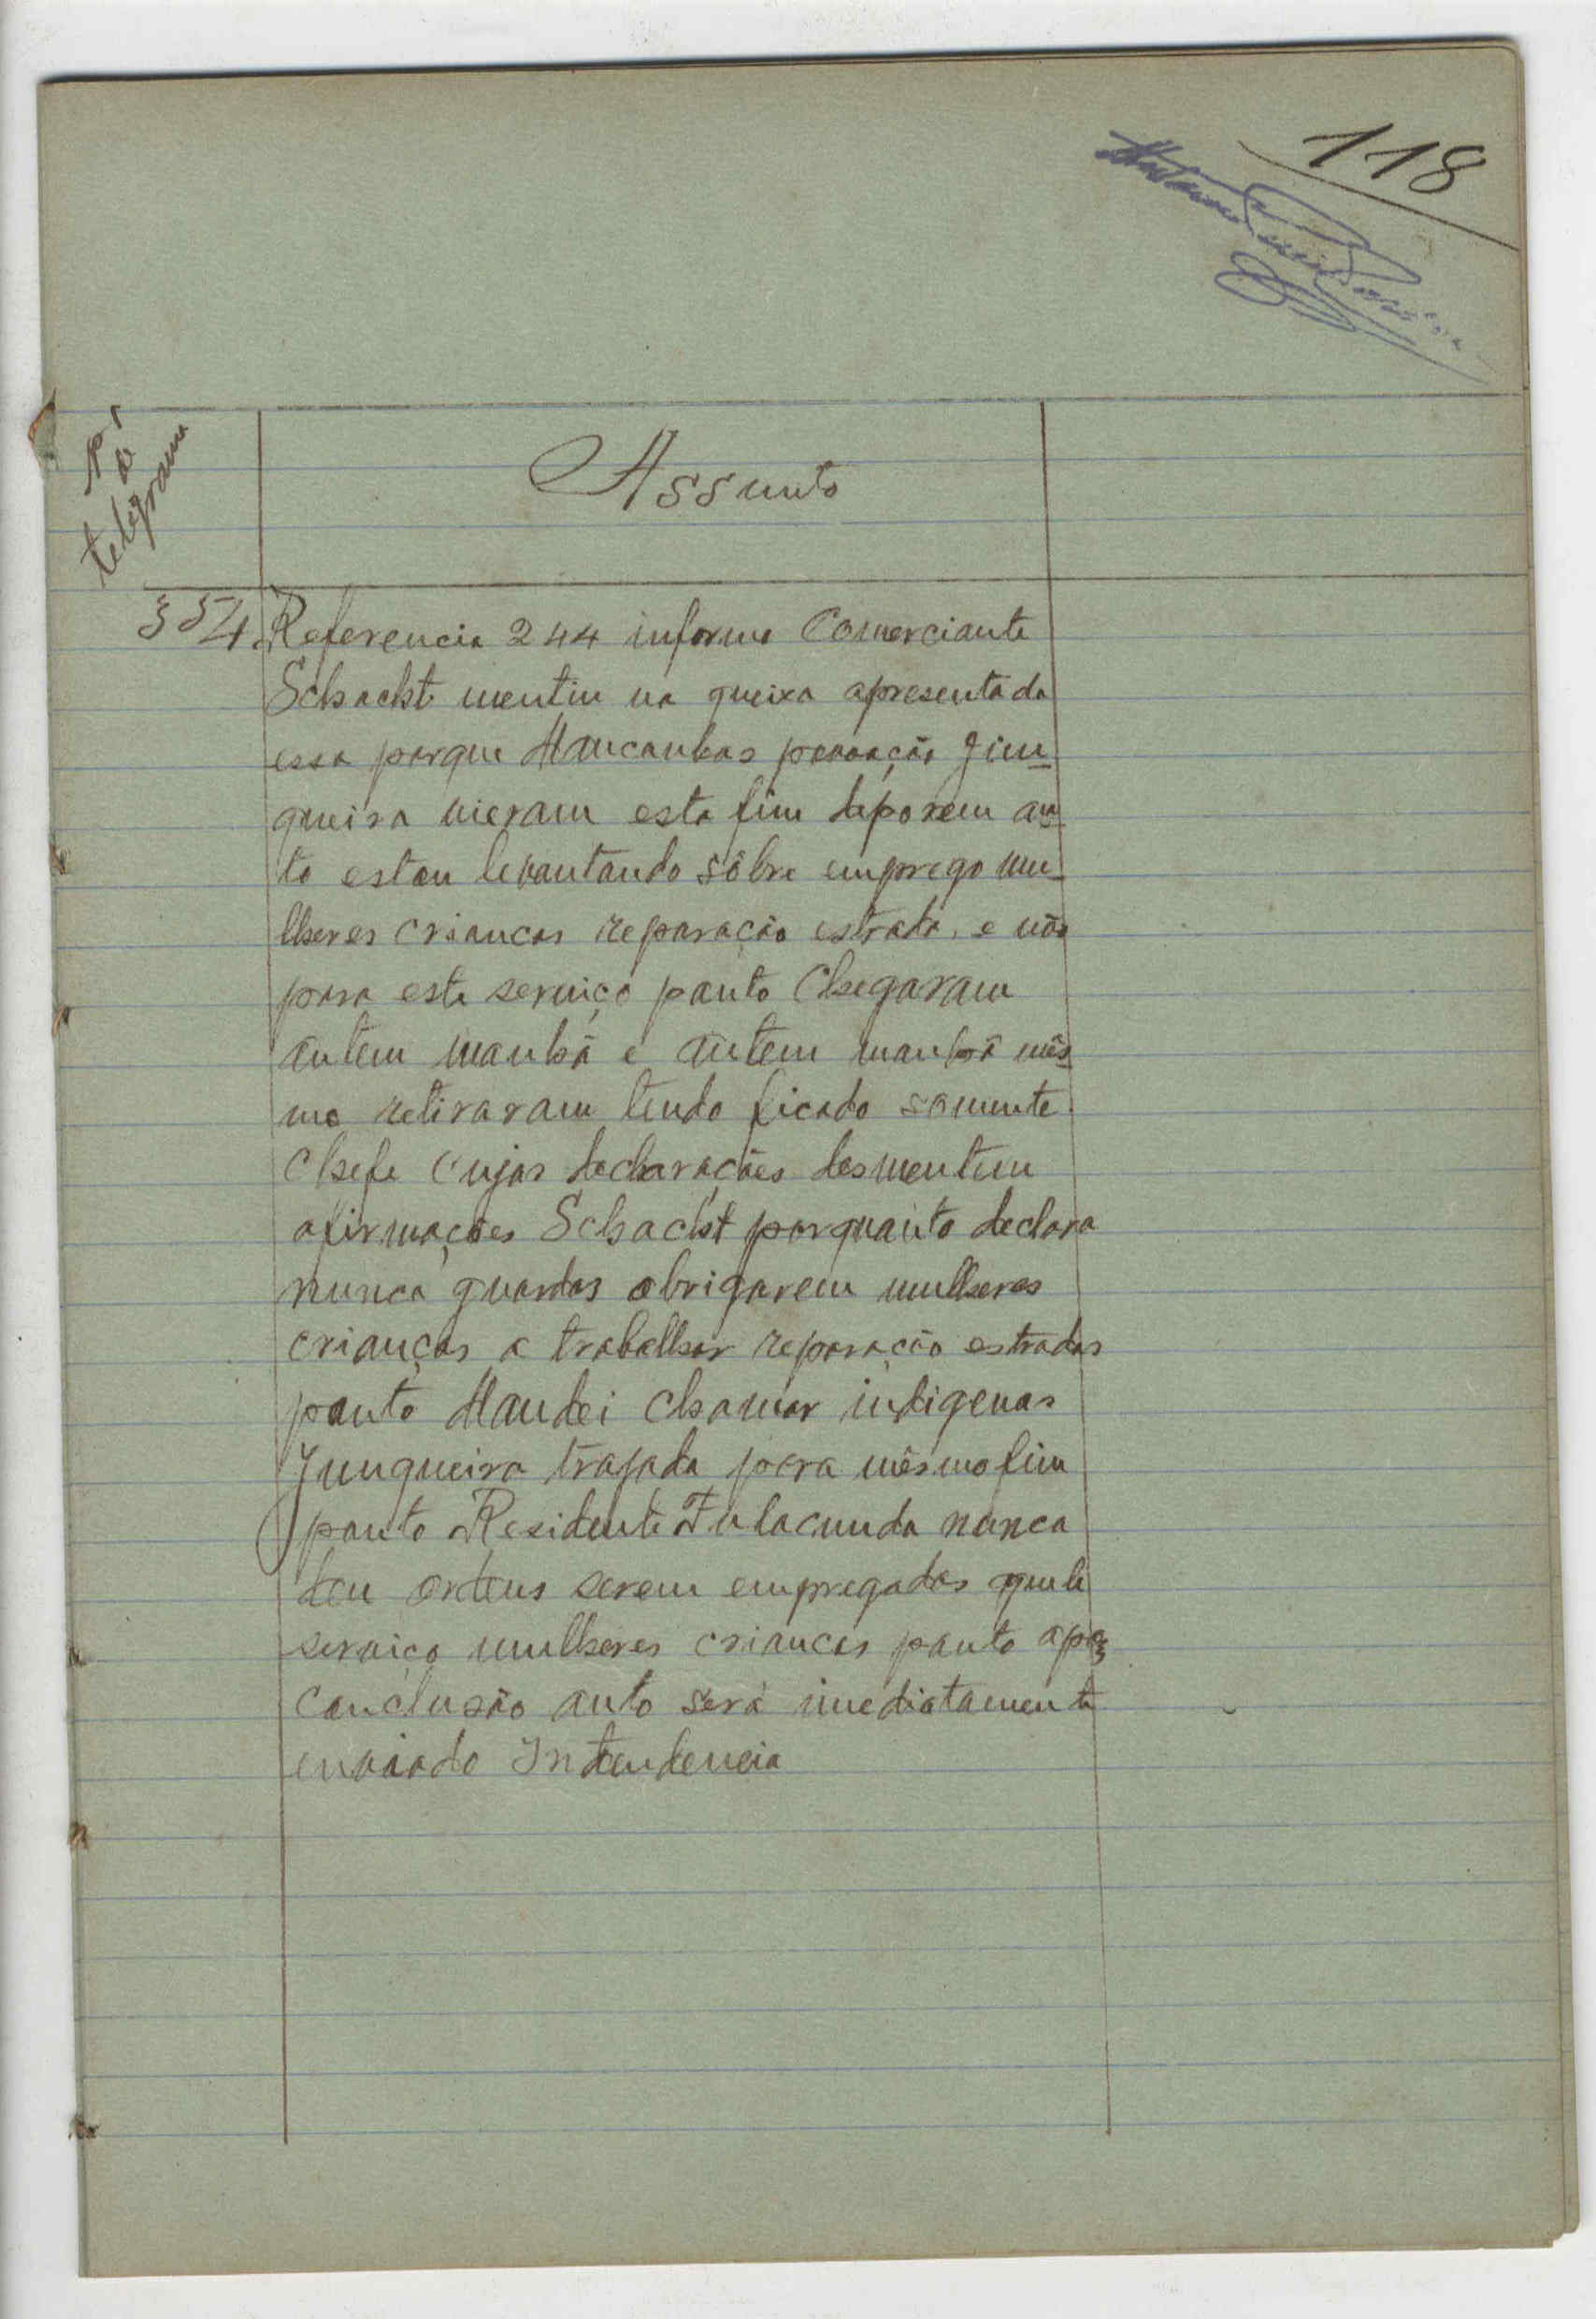 118
Nº
de
telegrama
Assunto
354. Referencia 244 informo Comerciante
Schacht mentiu na queixa apresentada
essa porque Mancanhas povoação Jun-
queira vieram esta fim deporem au-
to estou levantando sôbre emprego mu-
lheres criancas reparação estrada, e não
para este serviço ponto Chegaram
ontem manhã e ontem manhã mês-
mo retiraram tendo ficado somente
Chefe cujas declarações desmentem
afirmações Schacht porquanto declara
nunca guardas obrigarem mulheres
crianças a trabalhar reparação estradas
ponto Mandei chamar indigenas
Junqueira trajada para mêsmo fim
ponto Residente Fulacunda nunca
deu ordens serem empregadas quele
serviço mulheres criancas ponto apoz
Conclusão auto será imediatamente
enviado Intendencia